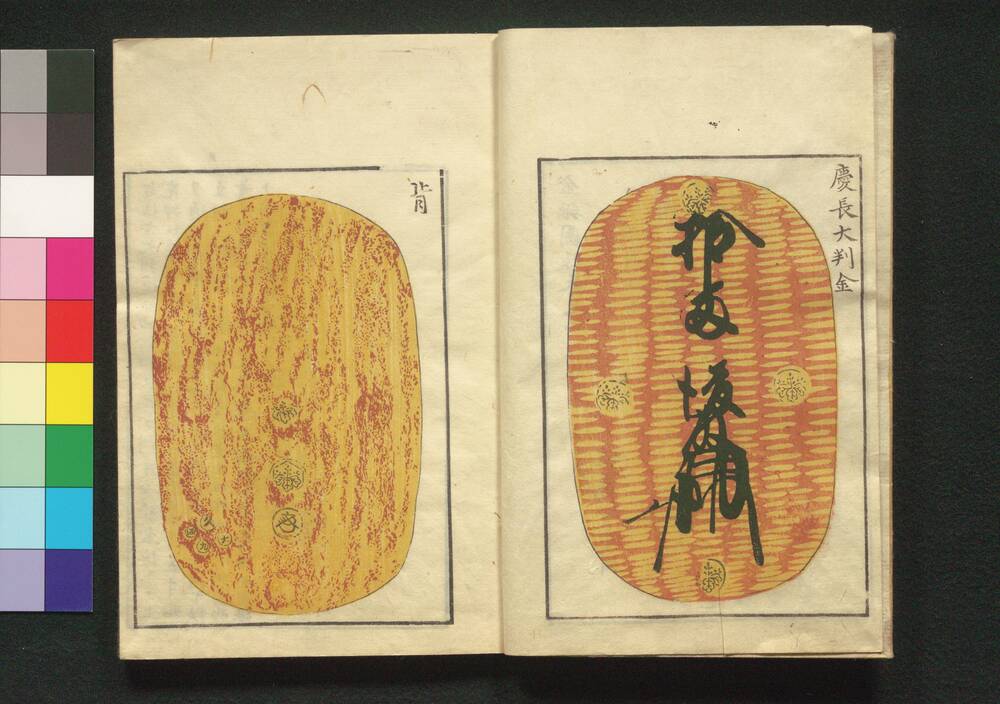 慶長大判金
拾両
後藤
背